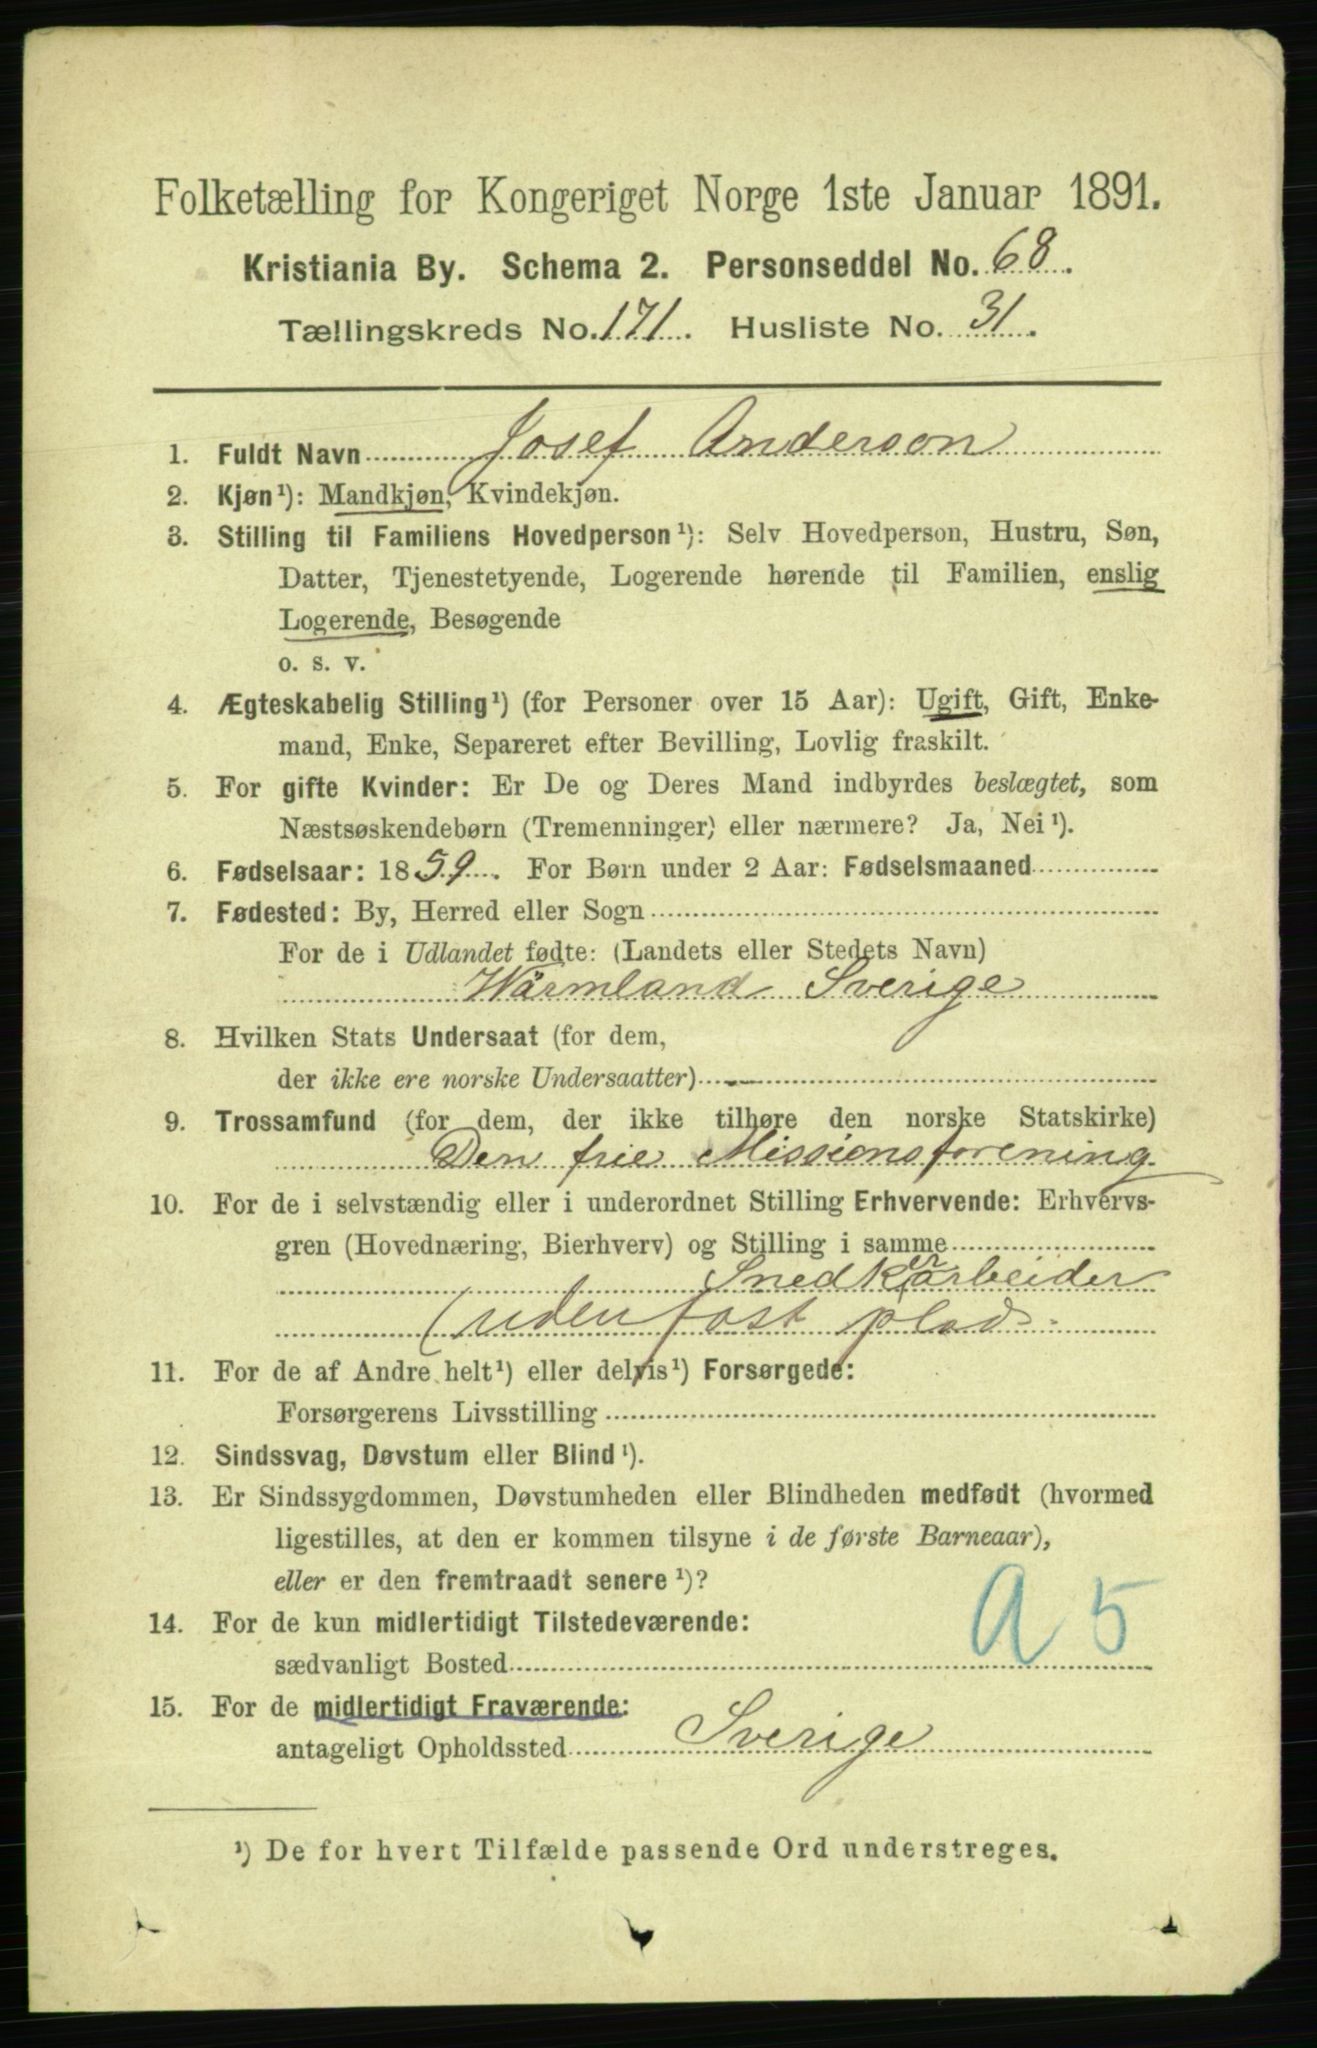 Folketælling for Kongeriget Norge 1ste Januar 1891.
Kristiania By. Schema 2. Personseddel No. 68.
Tællingskreds No. 171. Husliste No. 31.
1. Fuldt Navn Josef Anderson
2. Kjøn¹): Mandkjøn, Kvindekjøn.
3. Stilling til Familiens Hovedperson¹): Selv Hovedperson, Hustru, Søn,
Datter, Tjenestetyende, Logerende hørende til Familien, enslig
Logerende, Besøgende
o. s. v.
4. Ægteskabelig Stilling¹) (for Personer over 15 Aar): Ugift, Gift, Enke-
mand, Enke, Separeret efter Bevilling, Lovlig fraskilt.
5. For gifte Kvinder: Er De og Deres Mand indbyrdes beslægtet, som
Næstsøskendebørn (Tremenninger) eller nærmere? Ja, Nei¹).
6. Fødselsaar: 1859. For Børn under 2 Aar: Fødselsmaaned
7. Fødested: By, Herred eller Sogn
For de i Udlandet fødte: (Landets eller Stedets Navn)
Wärmland Sverige
8. Hvilken Stats Undersaat (for dem,
der ikke ere norske Undersaatter)
9. Trossamfund (for dem, der ikke tilhøre den norske Statskirke)
Den frie Missionsforening
10. For de i selvstændig eller i underordnet Stilling Erhvervende: Erhvervs-
gren (Hovednæring, Bierhverv) og Stilling i samme
Snedkerarbeider
(uden fast plads.
11. For de af Andre helt¹) eller delvis¹) Forsørgede:
Forsørgerens Livsstilling
12. Sindssvag, Døvstum eller Blind¹).
13. Er Sindssygdommen, Døvstumheden eller Blindheden medfødt (hvormed
ligestilles, at den er kommen tilsyne i de første Barneaar),
eller er den fremtraadt senere¹)?
14. For de kun midlertidigt Tilstedeværende:
sædvanligt Bosted
a 5
15. For de midlertidigt Fraværende:
antageligt Opholdssted Sverige
¹) De for hvert Tilfælde passende Ord understreges.